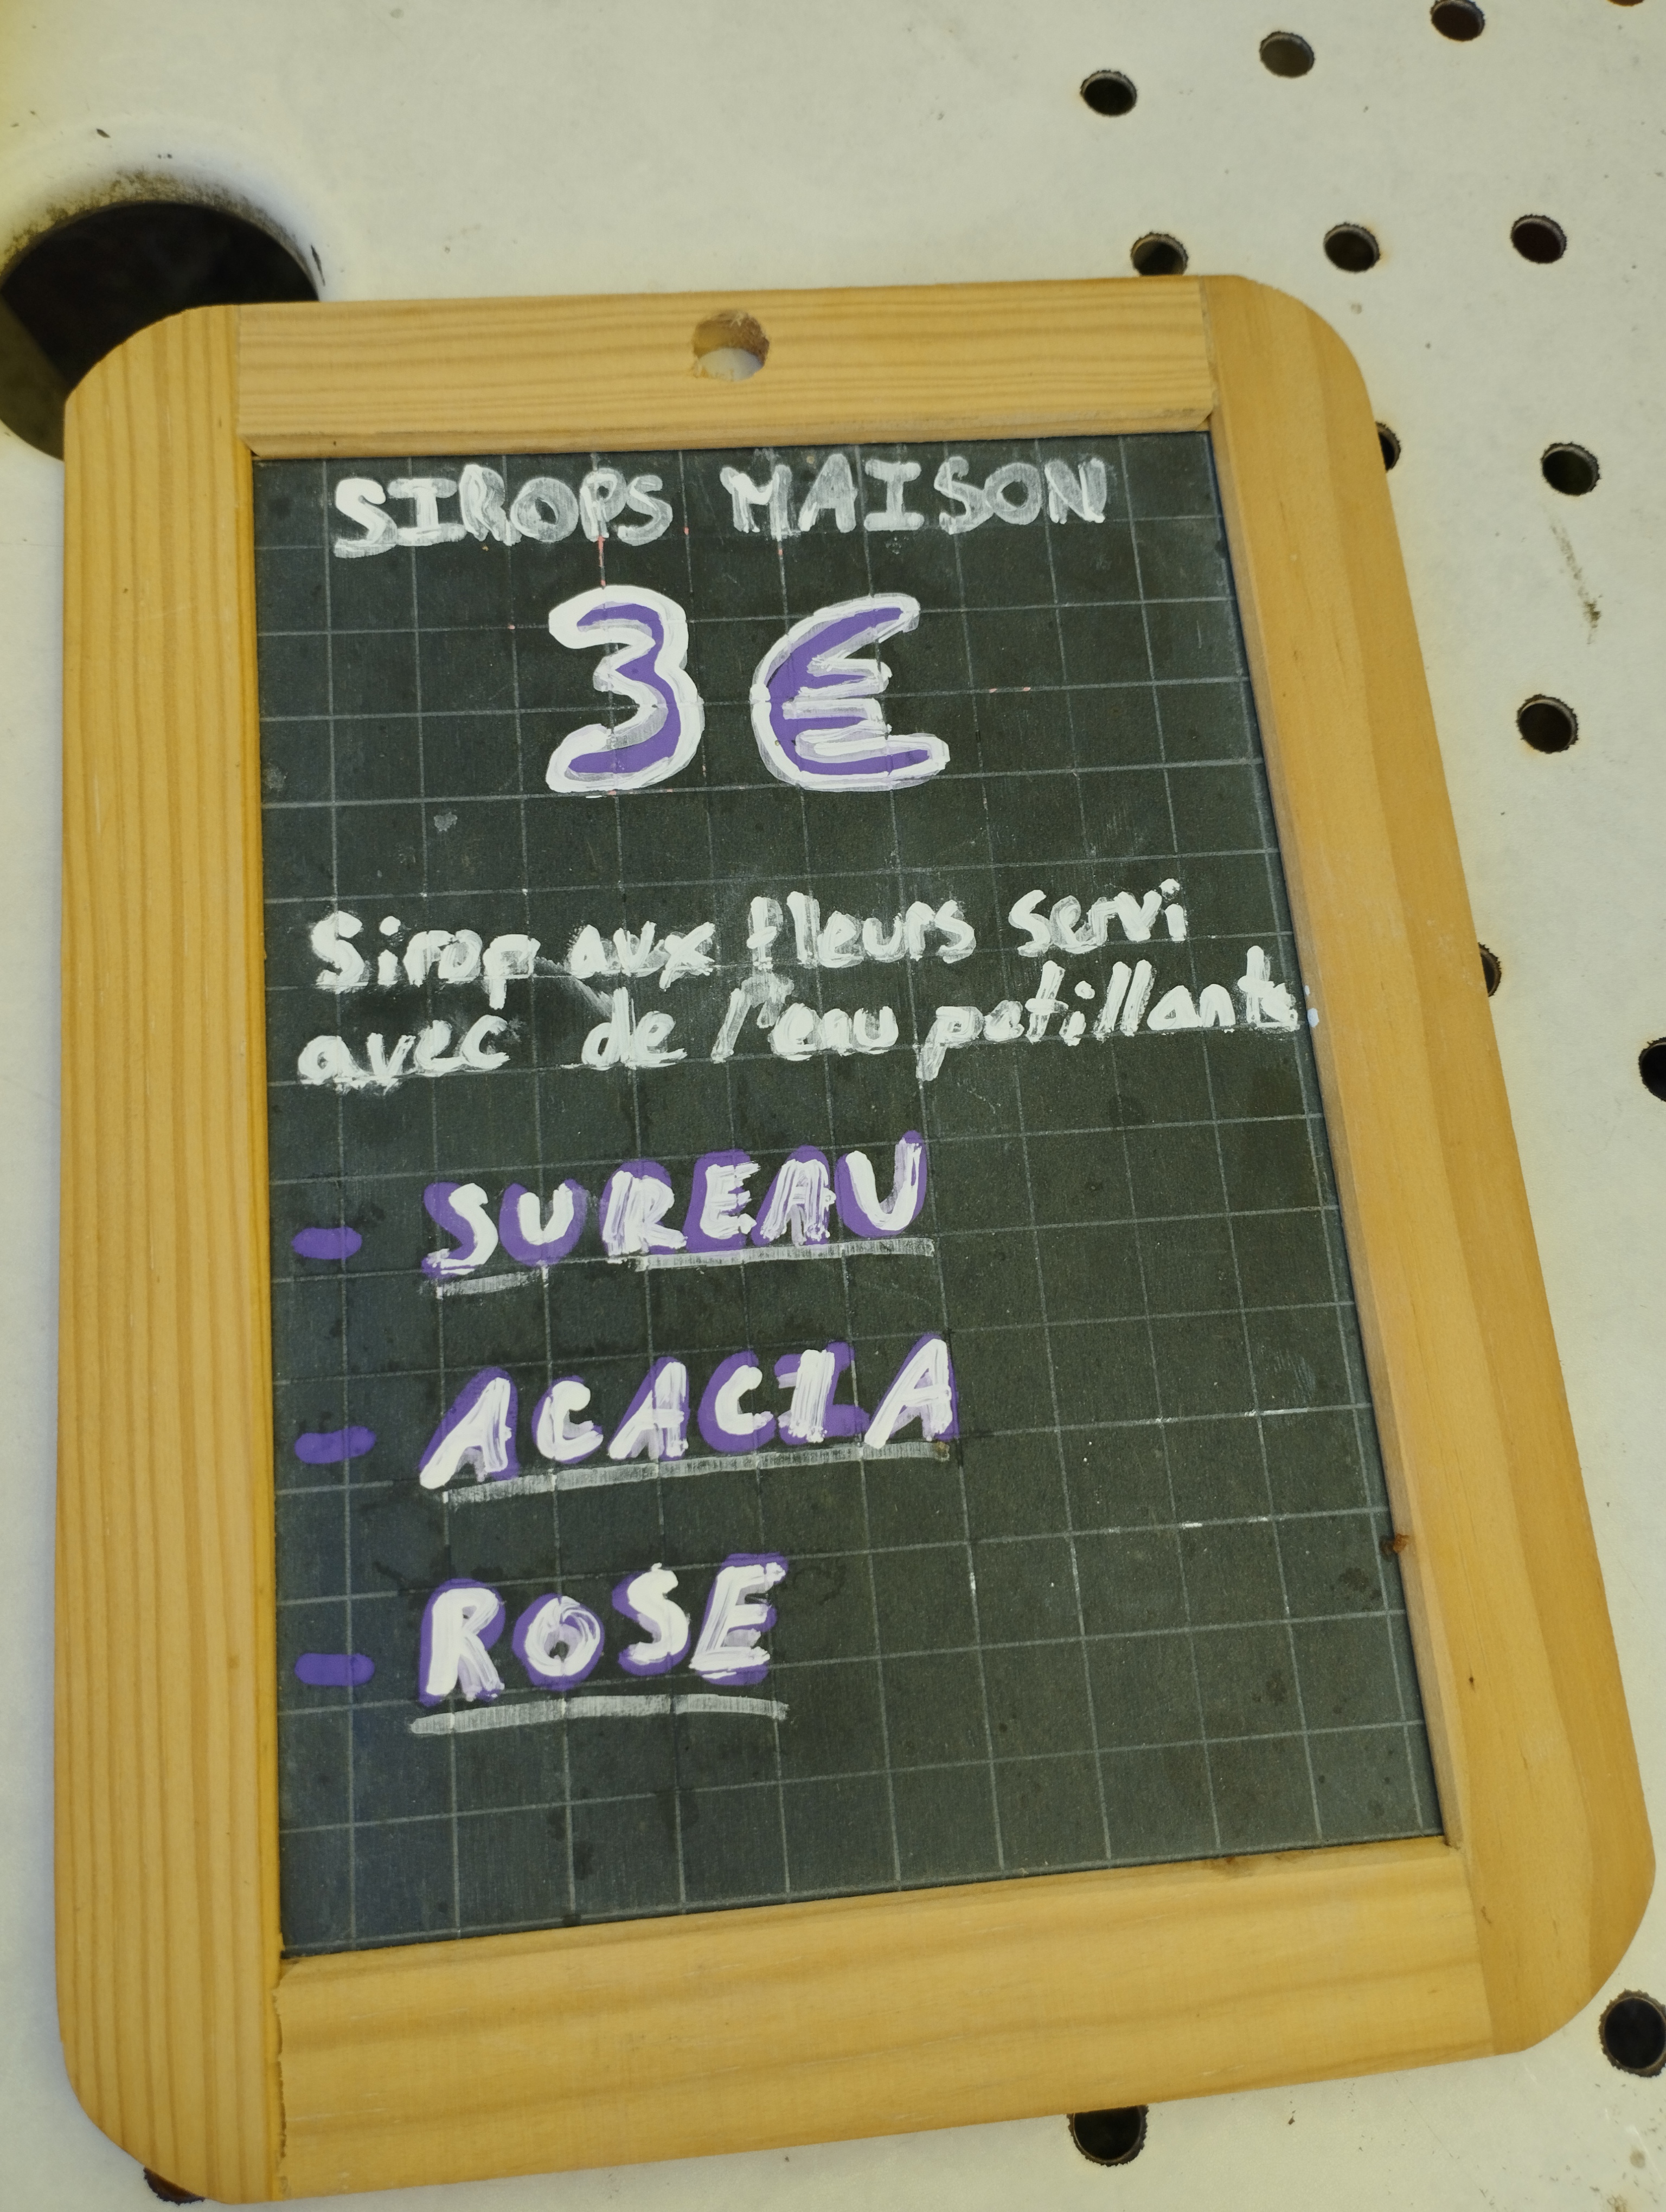 SIROPS MAISON
3€
Sirop aux fleurs servi
avec de l'eau petillante
- SUREAU
- ACACIA
- ROSE